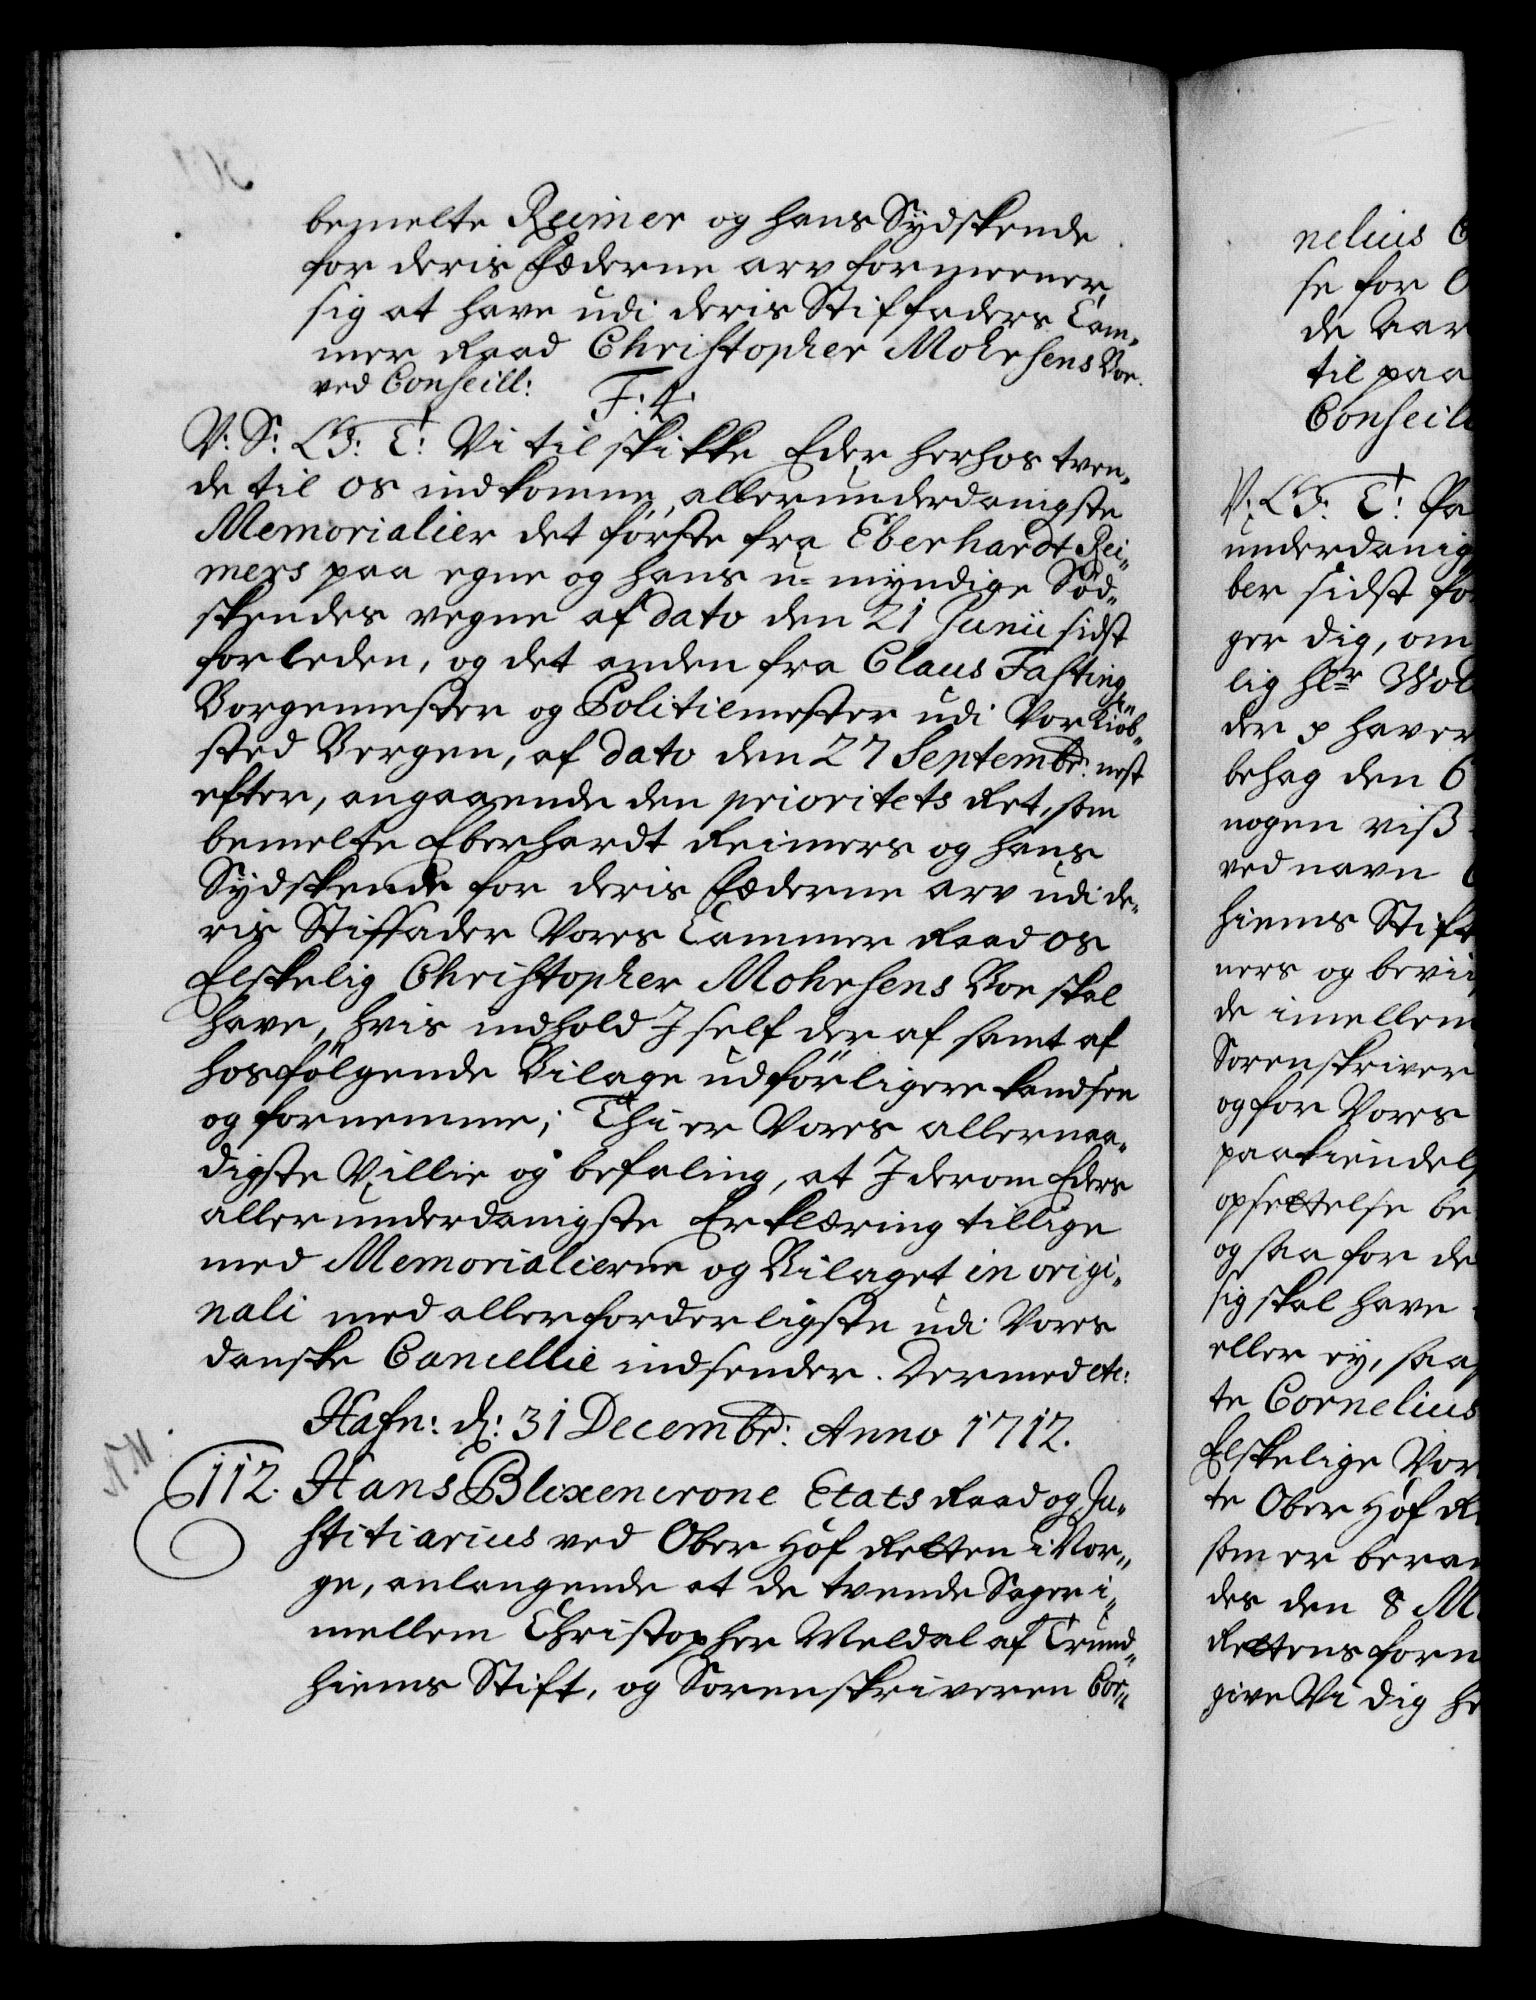 bemelte Reimer og hans Sydskende
for deris Fæderne arv formeener
sig at have udi deris Stiffaders Cam„
mer Raad Christopher Mohrsens Boe.
ved Conseill: F: 4:
V: S: G: T: Vi tilskikke Eder herhos tven„
de til os indkomne allerunderdanigste
Memorialier det første fra Eberhardt Rei„
mers paa egne og hans u-myndige Sød„
skendes vegne af dato den 21 Junii sidst
forleden, og det anden fra Claus Fasting
Borgemester og Politiemester udi Vor Kiøb„
sted Bergen, af dato den 27 Septembr: nest
efter, angaaende den prioritets Ret, som
bemelte Eberhardt Reimers og hans
Sydskende for deris Fæderne arv udi de„
ris Stiffader Vores Cammer Raad os
Elskelig Christopher Mohrsens Boe skal
have, hvis indhold I self der af samt af
hosfølgende Bilage udførligere kand see
og fornemme; Thi er Vores allernaa„
digste Villie og befaling, at I derom Eders
allerunderdanigste Erklæring tillige
med Memorialierne og Bilaget in origi„
nali med allerforderligste udi Vores
danske Cancellie indsender. Dermed etc:
Hafn: d: 31 Decembr: Anno 1712.
112. Hans Blixencrone Etats Raad og Ju„
stitiarius ved Ober Hof Retten i Nor„
ge, anlangende at de tvende Sager i„
mellem Christopher Meldal af Trund„
hiems Stift, og Sorenskriveren Cor„
nelius
se for
de Aar
til paa
Conseill
V: G: T:
underdanig
ber sidst
ger dig, om
lig Hr
der p haver
behag den 6
nogen viss
ved navn
hiems Stift
ners og bevii
de imellem
Sorenskriver
og for Vores
paakiendels
opsettelse be
og saa for de
sig skal have
eller ej, saa
te Cornelius
Elskelige Vor
te Ober Hof
som er
des den 8
Rettens
give Vi dig